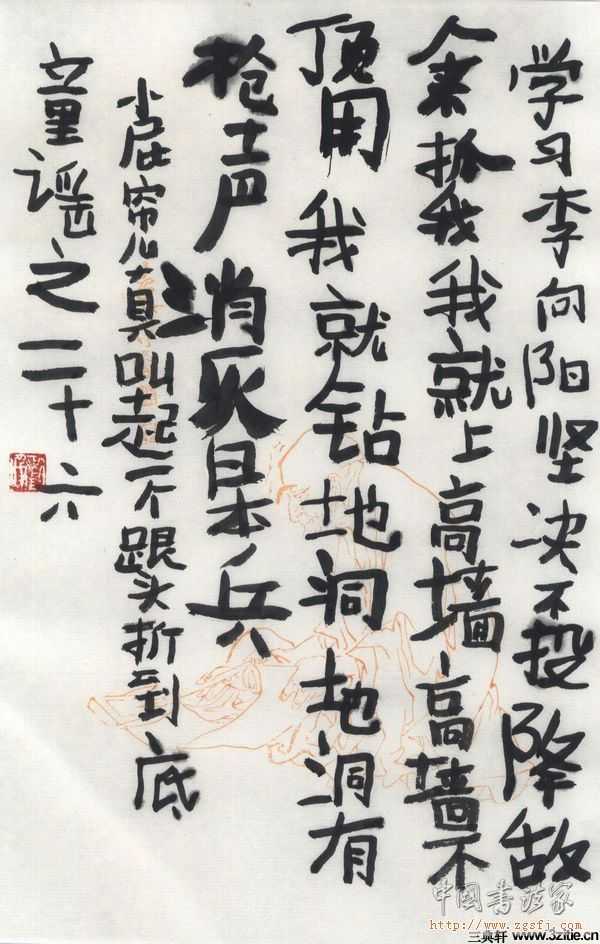 学习李向阳坚决不投降敌
人来抓我我就上高墙高墙不
顶用我就钻地洞地洞有
枪声消灭日本兵
小屁帘儿真叫起一个跟头折到底
童谣之二十六
中国书法家
http://www.zgsfj.com
三典轩 www.3ztile.cn